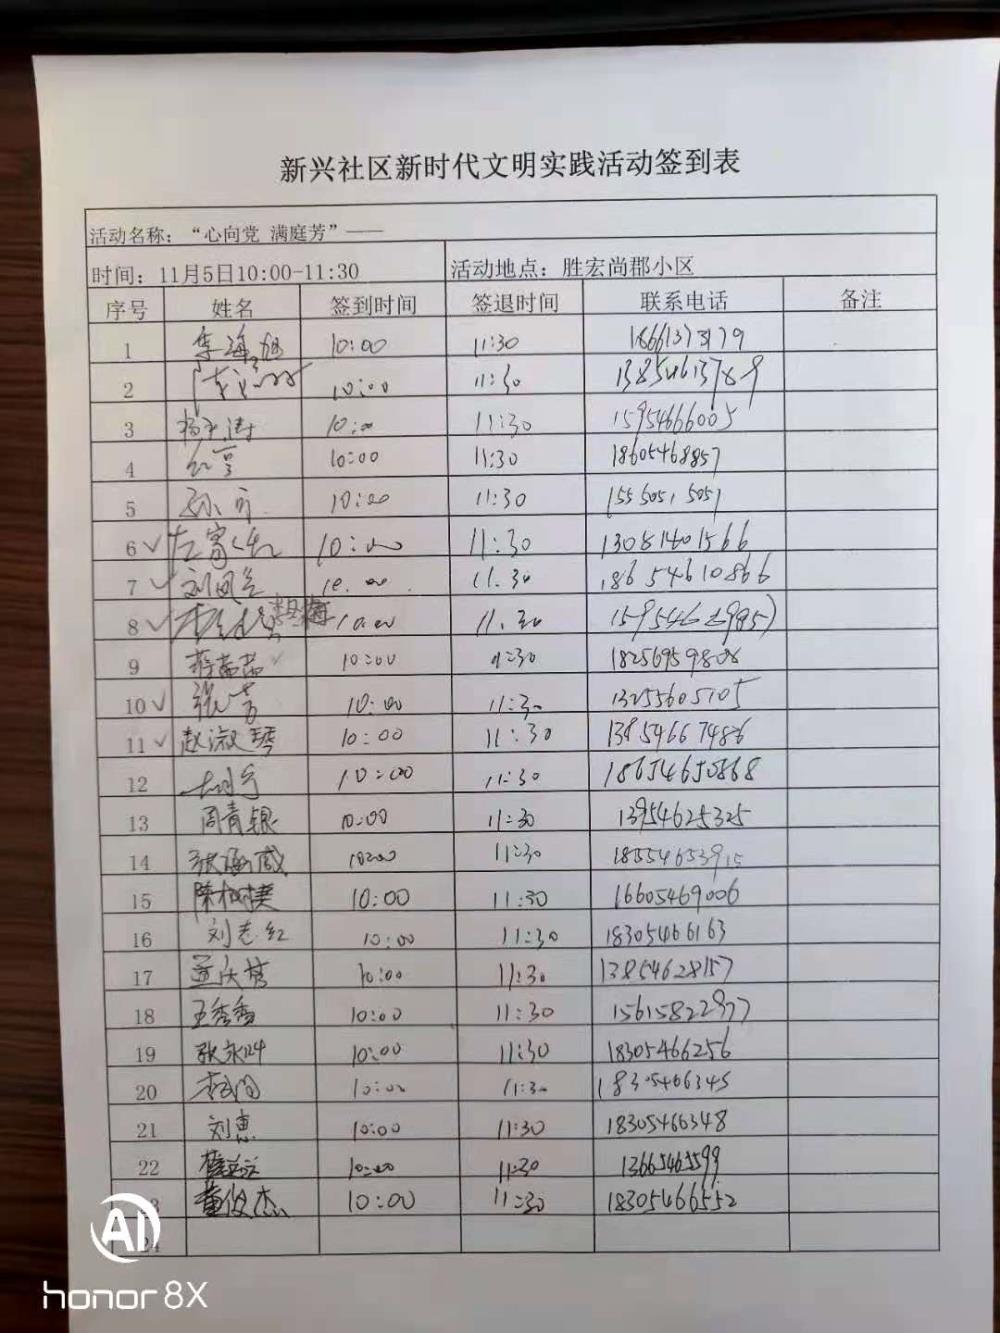 新兴社区新时代文明实践活动签到表
活动名称：“心向党 满庭芳”——
时间：11月5日10:00-11:30 活动地点：胜宏尚郡小区
序号 姓名 签到时间 签退时间 联系电话 备注
1 10:00 11:30
2 10:00 11:30
3 10:00 11:30 15954666005
4 10:00 11:30 18605468857
5 10:00 11:30 15550515051
6 ✓ 10:00 11:30 13081401566
7 ✓ 10.00 11.30 18654610866
8 ✓ 10.00 11.30
9 10:00 11:30 18256959808
10 ✓ 张芳 10:00 11:30 13255605105
11 ✓ 赵淑琴 10:00 11:30 13954667486
12 10:00 11:30 18654650868
13 周青银 10:00 11:30 13954625325
14 10:00 11:30 18554653915
15 10:00 11:30 16605469006
16 刘志红 10:00 11:30 18305466163
17 10:00 11:30 13854628157
18 王秀香 10:00 11:30 15615822977
19 10:00 11:30 18305466256
20 10:00 11:30 18305466345
21 刘惠 10:00 11:30 18305466348
22 10:00 11:30 13665465599
董俊杰 10:00 11:30 18305466552
24
AI
honor 8X